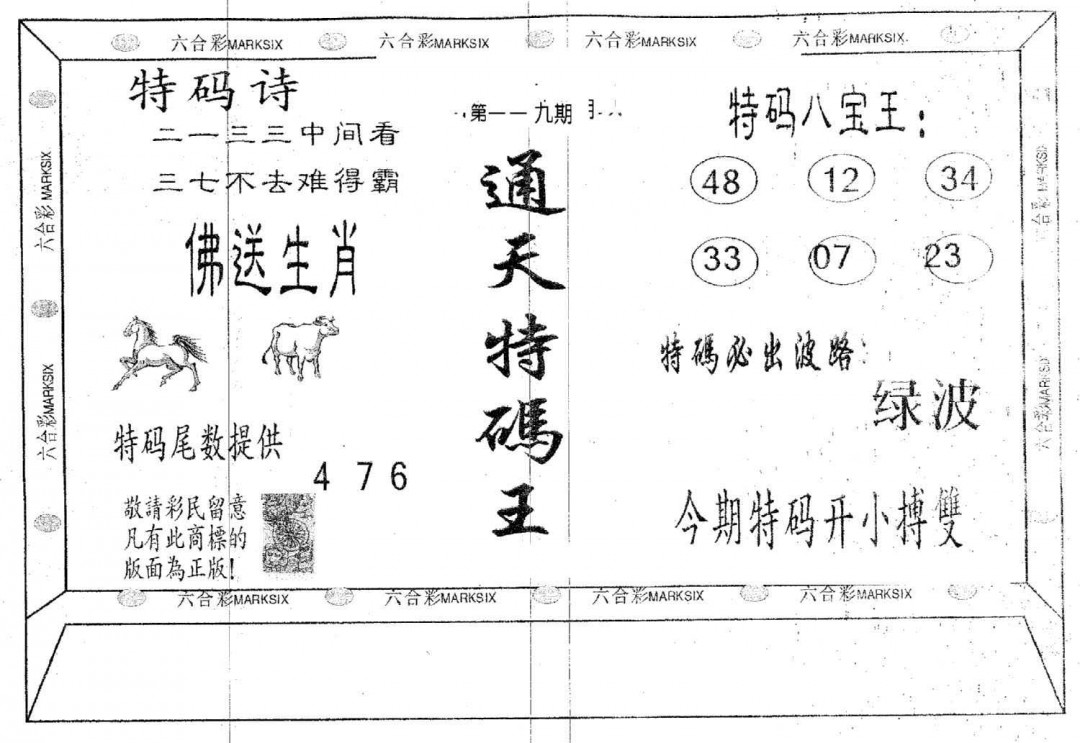 六合彩MARKSIX 六合彩MARKSIX 六合彩MARKSIX 六合彩MARKSIX
特码诗
二一三三中间看
三七不去难得霸
佛送生肖
特码尾数提供
4 7 6
敬請彩民留意
凡有此商標的
版面為正版!
第一一九期
通天特碼王
特码八宝王:
48 12 34
33 07 23
特碼必出波路:
绿波
今期特码开小搏雙
六合彩MARKSIX
六合彩MARKSIX
六合彩MARKSIX
六合彩MARKSIX
六合彩MARKSIX 六合彩MARKSIX 六合彩MARKSIX 六合彩MARKSIX